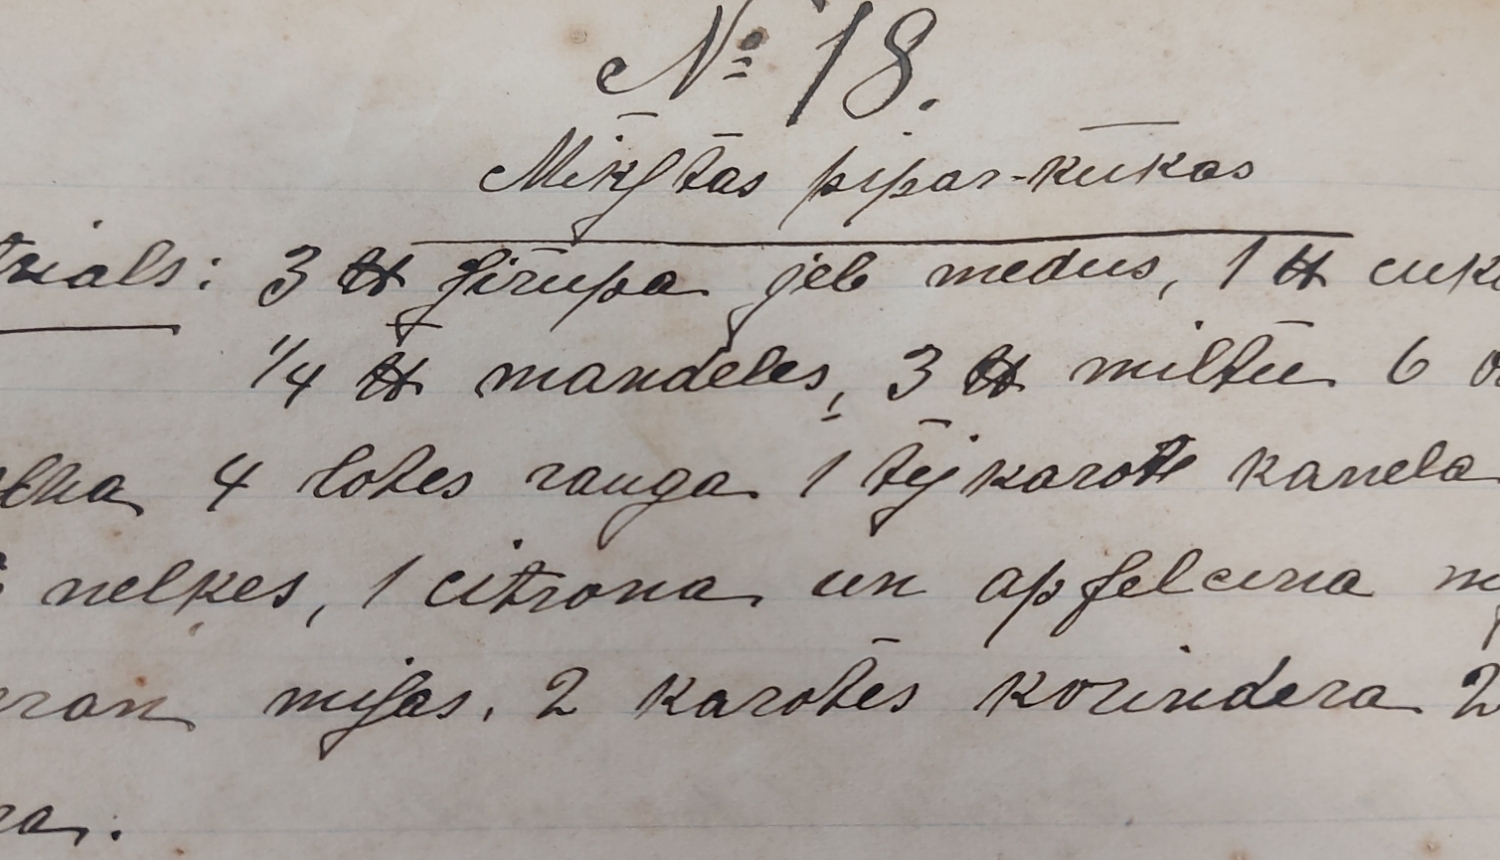 № 18.
Mīkſtās pipar-kūkas
rials: 3 ℔ ſīrupa jeb medus, 1 ℔ cuk
1/4 ℔ mandeles, 3 ℔ miltu 6
4 lotes rauga 1 tējkarote kanela
nelkes, 1 citrona un apſelcina
miſas. 2 karotēs korindera 2
ra.